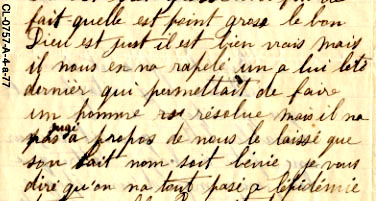 fait quelle est point grose le bon
Dieu est just il est bien vrais mais
il nous en na rapelé un a lui lété
dernièr qui permettait de faire
un homme résolue mais il na
pas jugé a propos de nous le laissé que
son sait nom soit bénie je vous
diré qu'on na tout pasé a lépidémie
CL-0757-A-4-a-77